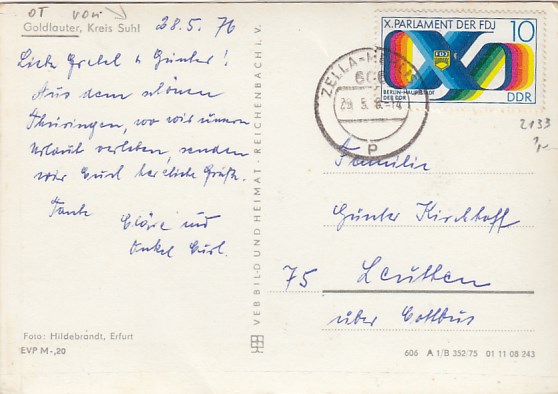 OT von
Goldlauter, Kreis Suhl
28.5. 76
Liebe Gretel u Günter!
Aus dem schönen
Thüringen, wo wir unseren
Urlaub verleben, senden
wir Euch herzliche Grüße.
Tante
Kläre und
Onkel Curt.
Foto: Hildebrandt, Erfurt
EVP M-,20
VEB BILD UND HEIMAT · REICHENBACH i. V.
X. PARLAMENT DER FDJ 10
FDJ
BERLIN-HAUPTSTADT
DER DDR
DDR
ZELLA-MEHLIS
P
2133
Familie
Günter Kirchhoff
75 Leuthen
über Cottbus
606 A 1/B 352/75 01 11 08 243